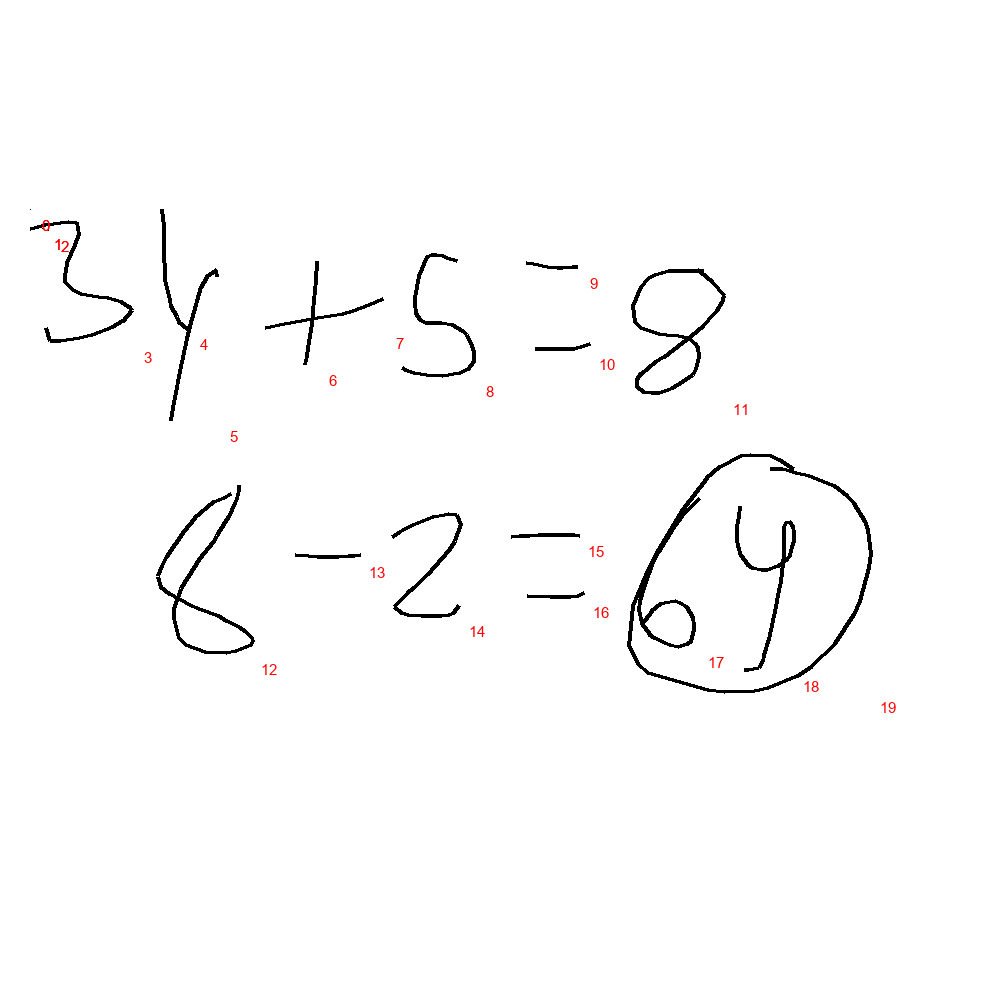 3y+5=8
0 1 2 3 4 5 6 7 8 9 10 11
8-2=6y
12 13 14 15 16 17 18 19